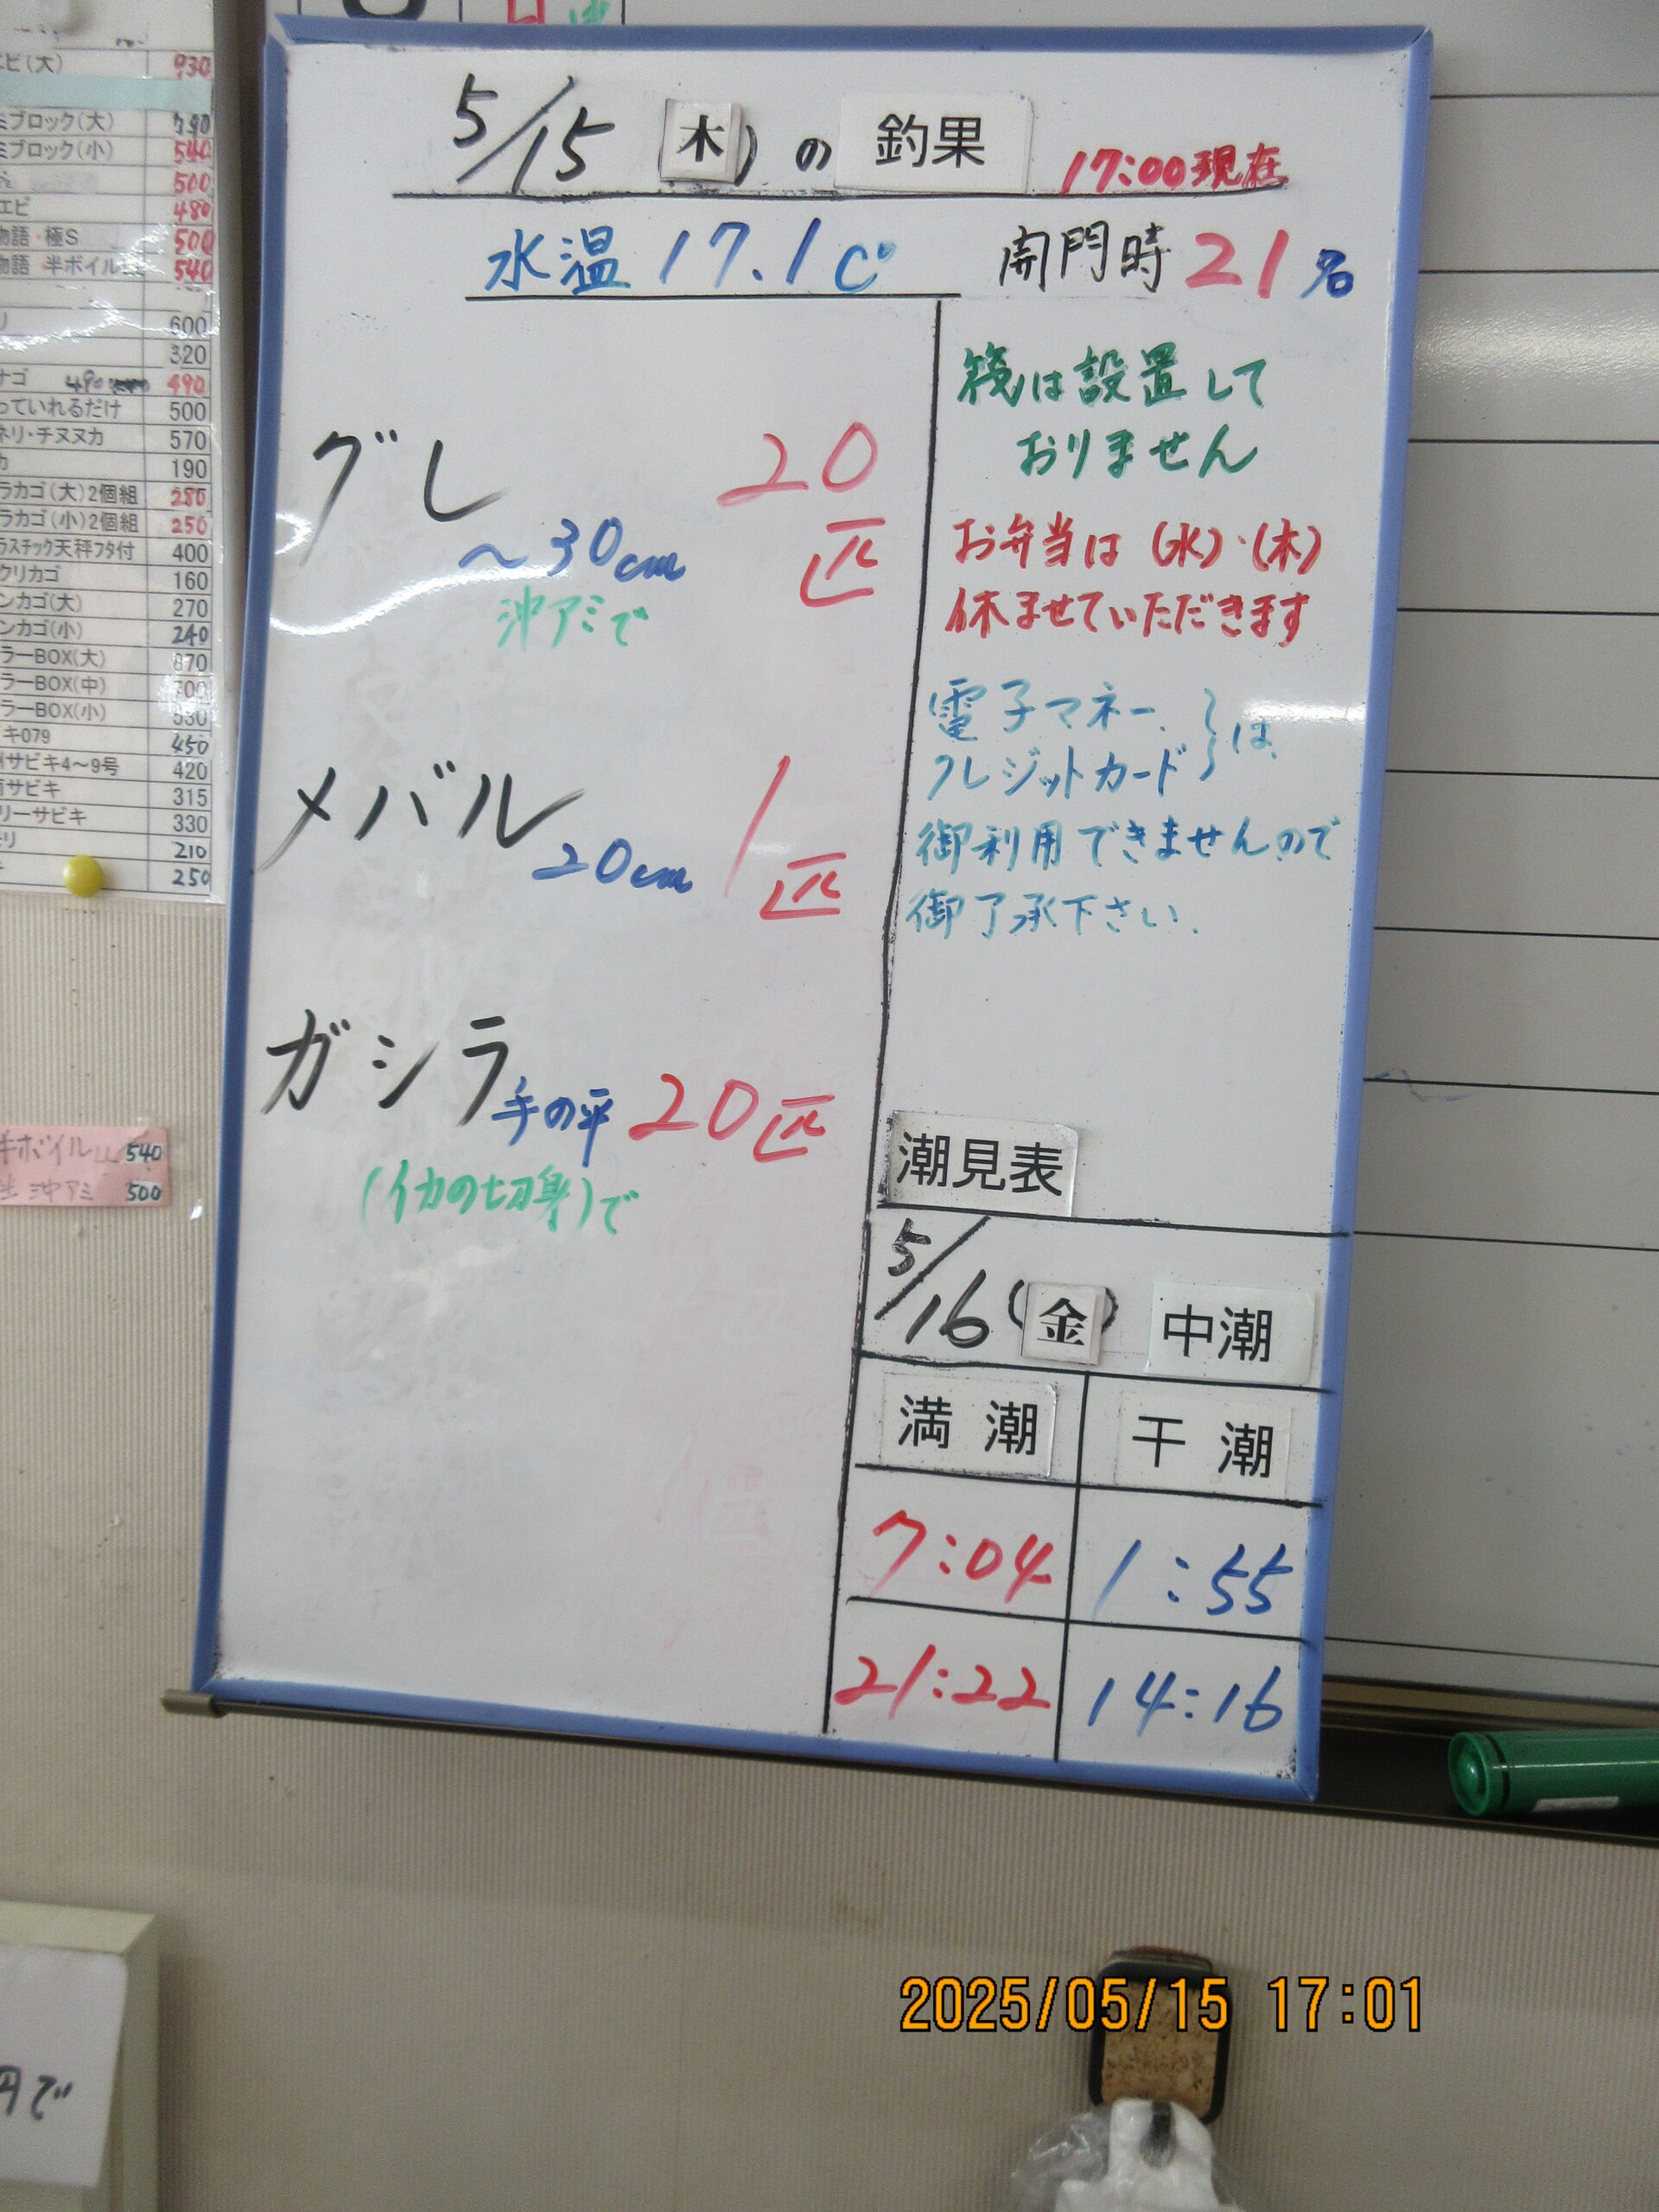 5/15 (木) の 釣果 17:00現在
水温 17.1C° 開門時 21名
グレ 20匹
～30cm
沖アミで
メバル 20cm 1匹
ガシラ 手の平 20匹
(イカの切身)で
筏は設置して
おりません
お弁当は(水)・(木)
休ませていただきます
電子マネー、
クレジットカード は
御利用できませんので
御了承下さい.
潮見表
5/16 (金) 中潮
満潮 干潮
7:04 1:55
21:22 14:16
エビ(大) 930
ミブロック(大) 790
ミブロック(小) 540
500
エビ 480
物語・極S 500
物語 半ボイル 540
600
320
ナゴ 490 490
っていれるだけ 500
ネリ・チヌヌカ 570
カ 190
ラカゴ(大)2個組 280
ラカゴ(小)2個組 250
ラスチック天秤フタ付 400
クリカゴ 160
ンカゴ(大) 270
ンカゴ(小) 240
ラーBOX(大) 870
ラーBOX(中) 700
ラーBOX(小) 530
キ079 450
サビキ4～9号 420
サビキ 315
リーサビキ 330
210
250
半ボイルLL 540
生 沖アミ 500
円で
2025/05/15 17:01